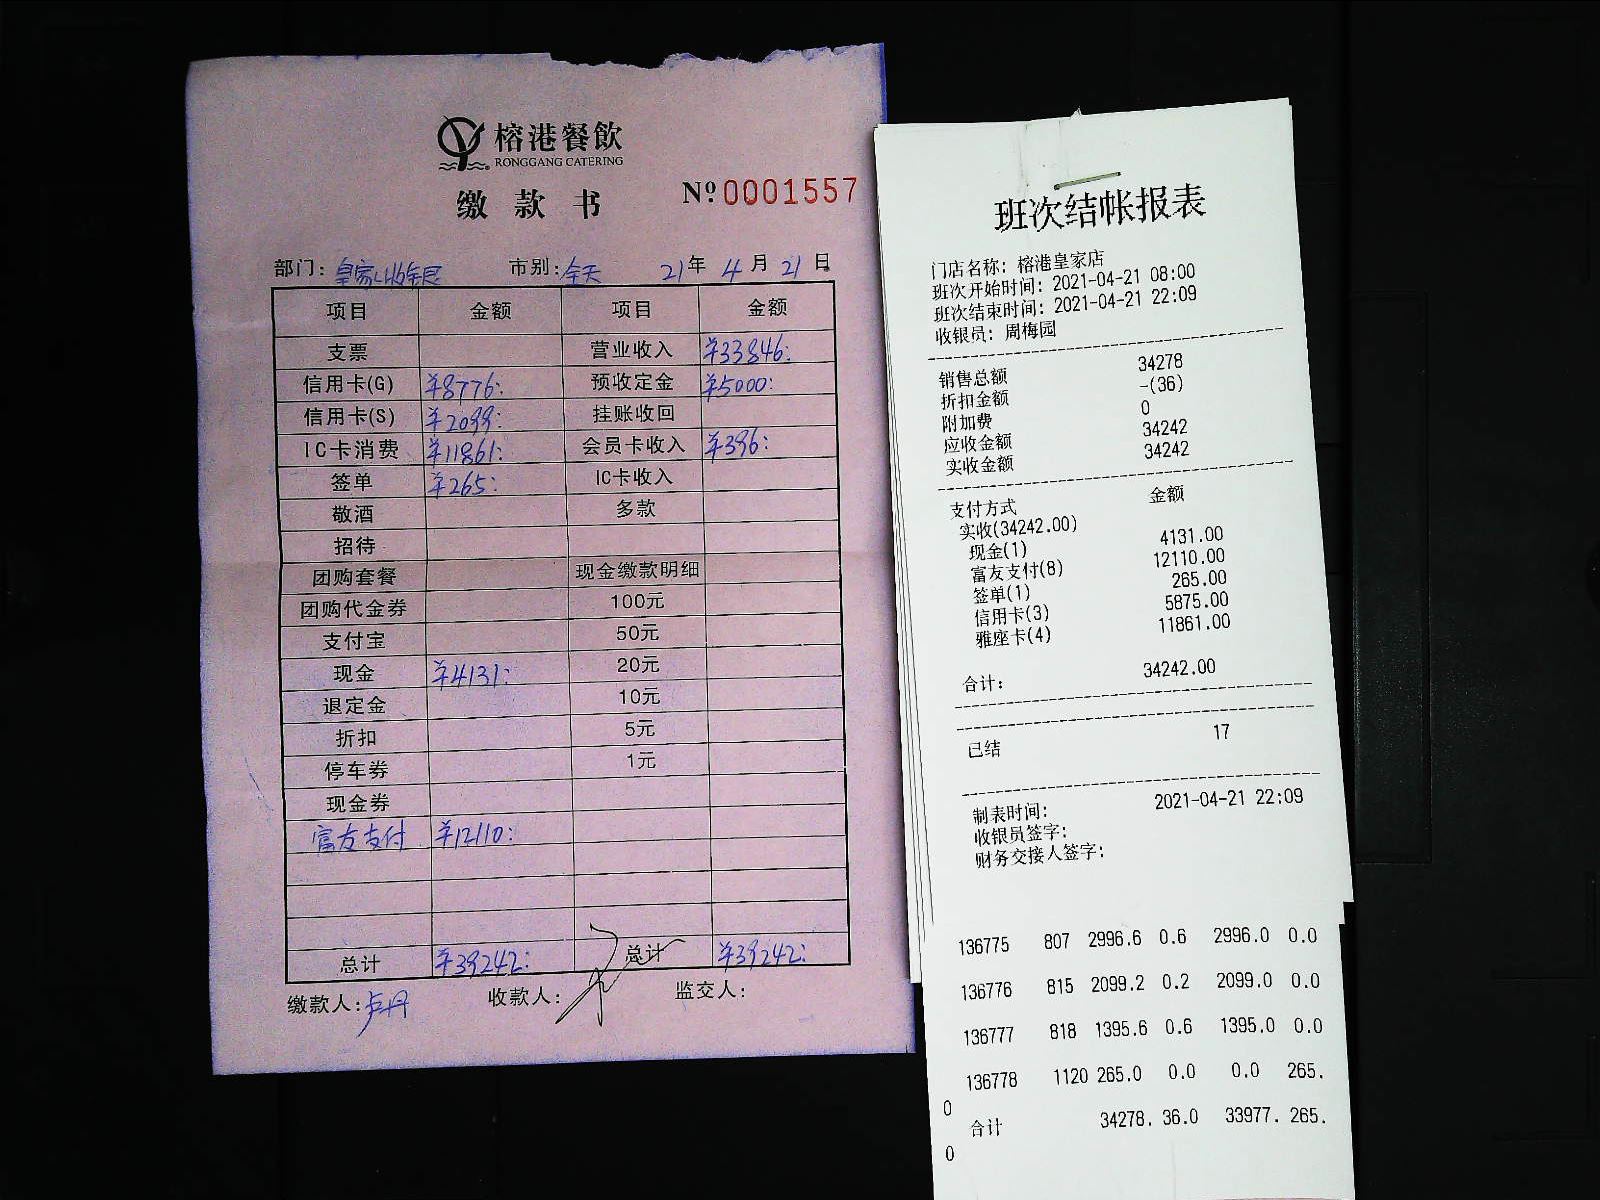 榕港餐飲
RONGGANG CATERING
缴款书
№0001557
部门：皇家收银 市别：全天 21年4月21日
项目 金额 项目 金额
支票 营业收入 ¥33846:
信用卡(G) ¥8776: 预收定金 ¥5000:
信用卡(S) ¥2099: 挂账收回
IC卡消费 ¥11861: 会员卡收入 ¥396:
签单 ¥265: IC卡收入
敬酒 多款
招待
团购套餐 现金缴款明细
团购代金券 100元
支付宝 50元
现金 ¥4131: 20元
退定金 10元
折扣 5元
停车券 1元
现金券
富友支付 ¥12110:
总计 ¥39242: 总计 ¥39242:
缴款人：卢丹 收款人： 监交人：
班次结帐报表
门店名称：榕港皇家店
班次开始时间：2021-04-21 08:00
班次结束时间：2021-04-21 22:09
收银员：周梅园
销售总额 34278
折扣金额 -(36)
附加费 0
应收金额 34242
实收金额 34242
支付方式 金额
实收(34242.00)
现金(1) 4131.00
富友支付(8) 12110.00
签单(1) 265.00
信用卡(3) 5875.00
雅座卡(4) 11861.00
合计： 34242.00
已结 17
制表时间： 2021-04-21 22:09
收银员签字：
财务交接人签字：
136775 807 2996.6 0.6 2996.0 0.0
136776 815 2099.2 0.2 2099.0 0.0
136777 818 1395.6 0.6 1395.0 0.0
136778 1120 265.0 0.0 0.0 265.
0
合计 34278. 36.0 33977. 265.
0